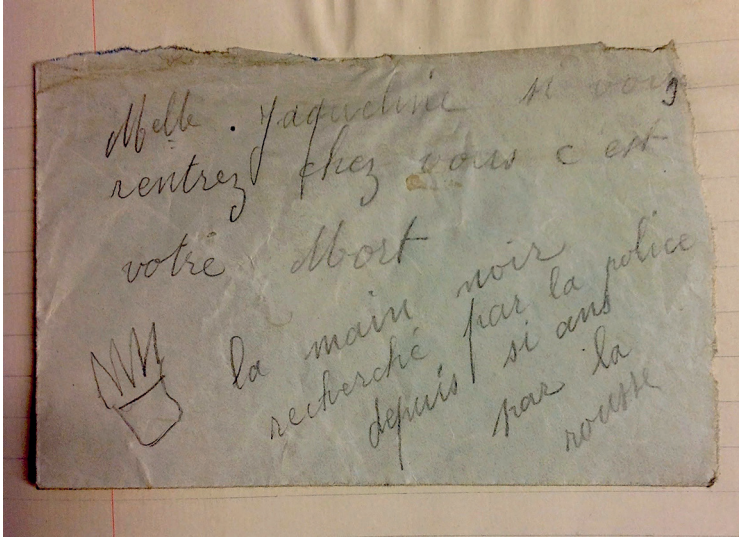 Melle. Jaqueline si vous
rentrez chez vous c'est
votre Mort
la main noir
recherché par la police
depuis si ans
par la
rousse